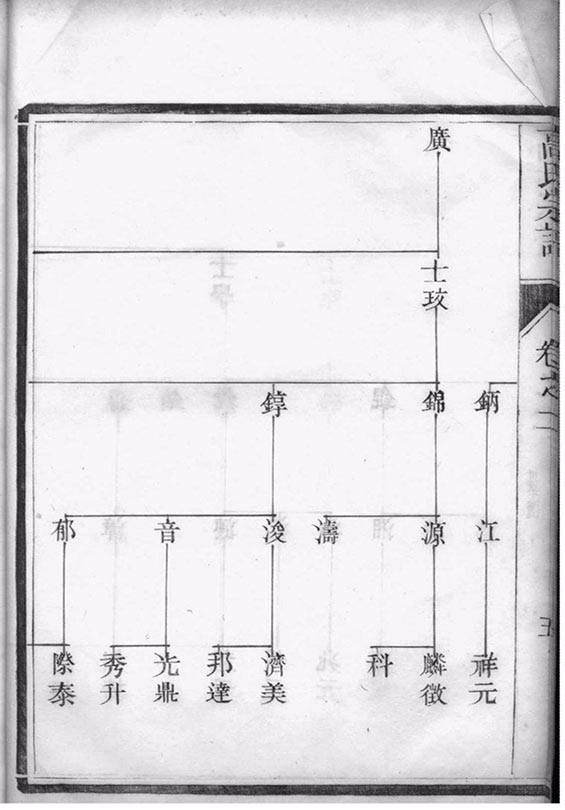 高氏宗譜
卷之二
五
廣
士玫
鈵
錦
錞
江
源
濤
浚
音
郁
祥元
麟徵
科
濟美
邦達
光鼎
秀升
際泰